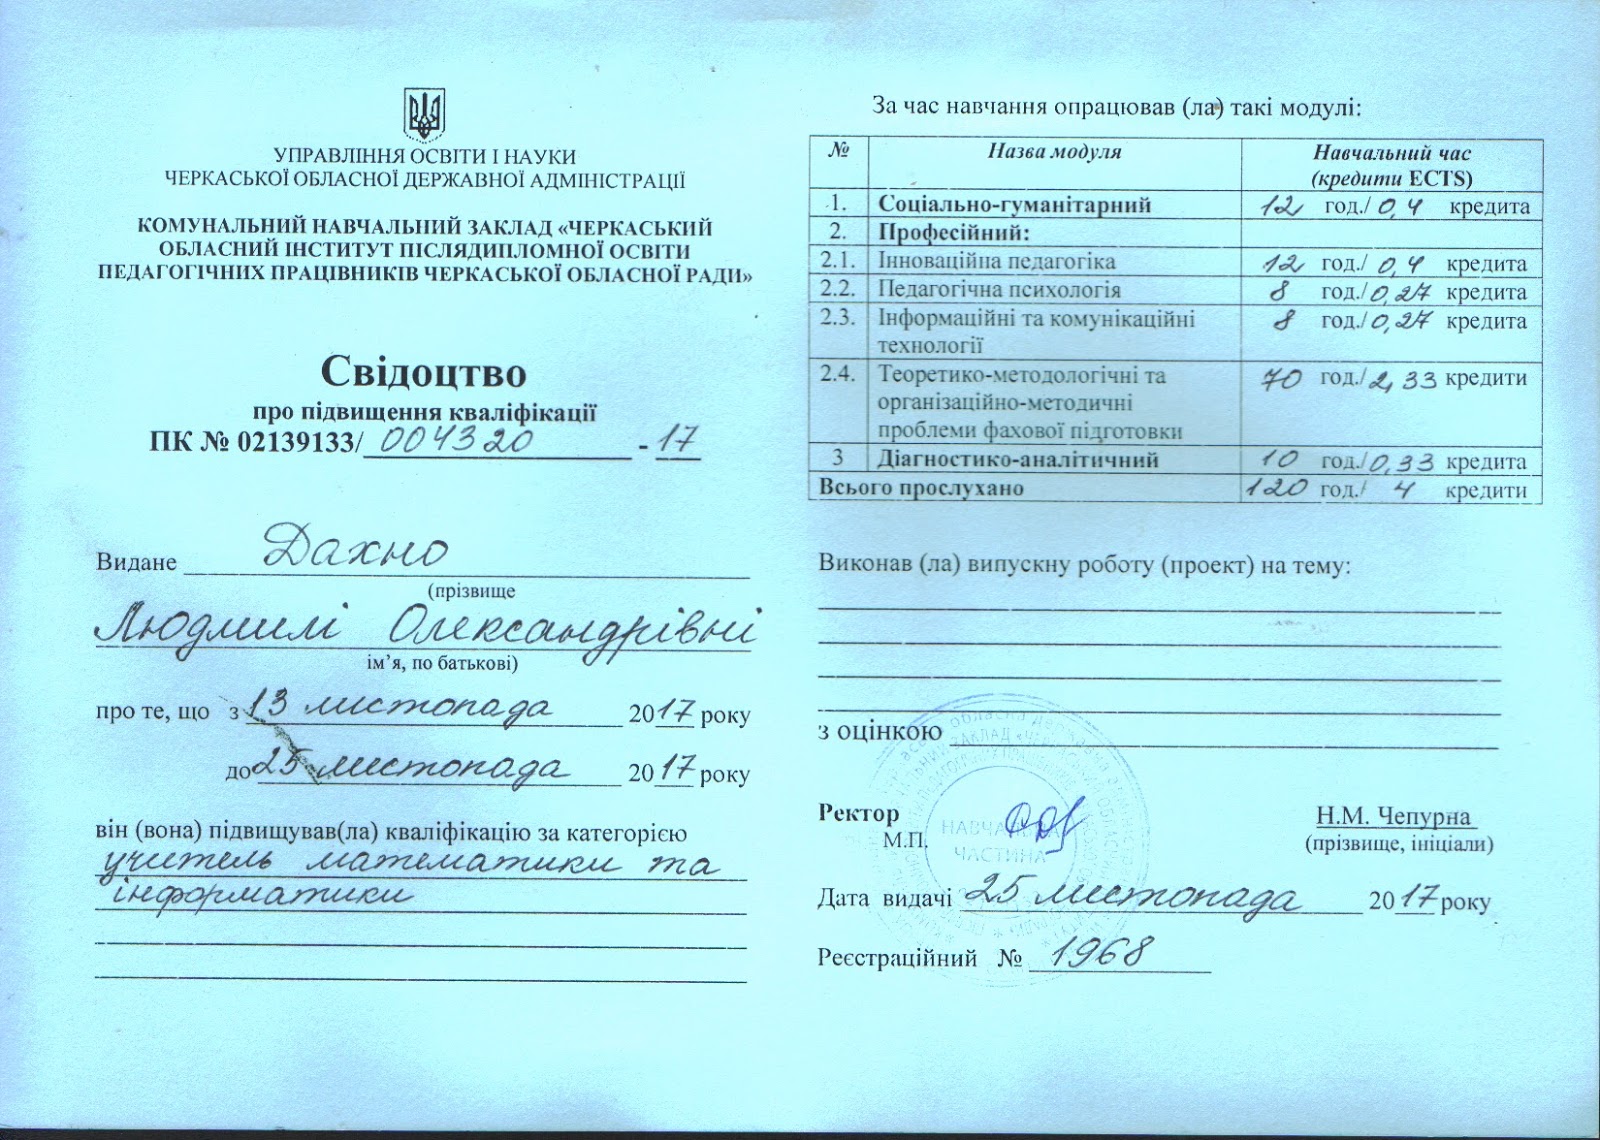 УПРАВЛІННЯ ОСВІТИ І НАУКИ
ЧЕРКАСЬКОЇ ОБЛАСНОЇ ДЕРЖАВНОЇ АДМІНІСТРАЦІЇ
КОМУНАЛЬНИЙ НАВЧАЛЬНИЙ ЗАКЛАД «ЧЕРКАСЬКИЙ
ОБЛАСНИЙ ІНСТИТУТ ПІСЛЯДИПЛОМНОЇ ОСВІТИ
ПЕДАГОГІЧНИХ ПРАЦІВНИКІВ ЧЕРКАСЬКОЇ ОБЛАСНОЇ РАДИ»
Свідоцтво
про підвищення кваліфікації
ПК № 02139133/ 004320 - 17
Видане Дахно
(прізвище
Людмилі Олександрівні
ім’я, по батькові)
про те, що з 13 листопада 2017 року
до 25 листопада 2017 року
він (вона) підвищував(ла) кваліфікацію за категорією
учитель математики та
інформатики
За час навчання опрацював (ла) такі модулі:
№ Назва модуля Навчальний час
(кредити ECTS)
1. Соціально-гуманітарний 12 год./ 0,4 кредита
2. Професійний:
2.1. Інноваційна педагогіка 12 год./ 0,4 кредита
2.2. Педагогічна психологія 8 год./ 0,27 кредита
2.3. Інформаційні та комунікаційні 8 год./ 0,27 кредита
технології
2.4. Теоретико-методологічні та 70 год./ 2,33 кредити
організаційно-методичні
проблеми фахової підготовки
3 Діагностико-аналітичний 10 год./ 0,33 кредита
Всього прослухано 120 год./ 4 кредити
Виконав (ла) випускну роботу (проект) на тему:
з оцінкою
Ректор Н.М. Чепурна
М.П. (прізвище, ініціали)
НАВЧАЛЬНА
ЧАСТИНА
Дата видачі 25 листопада 2017 року
Реєстраційний № 1968